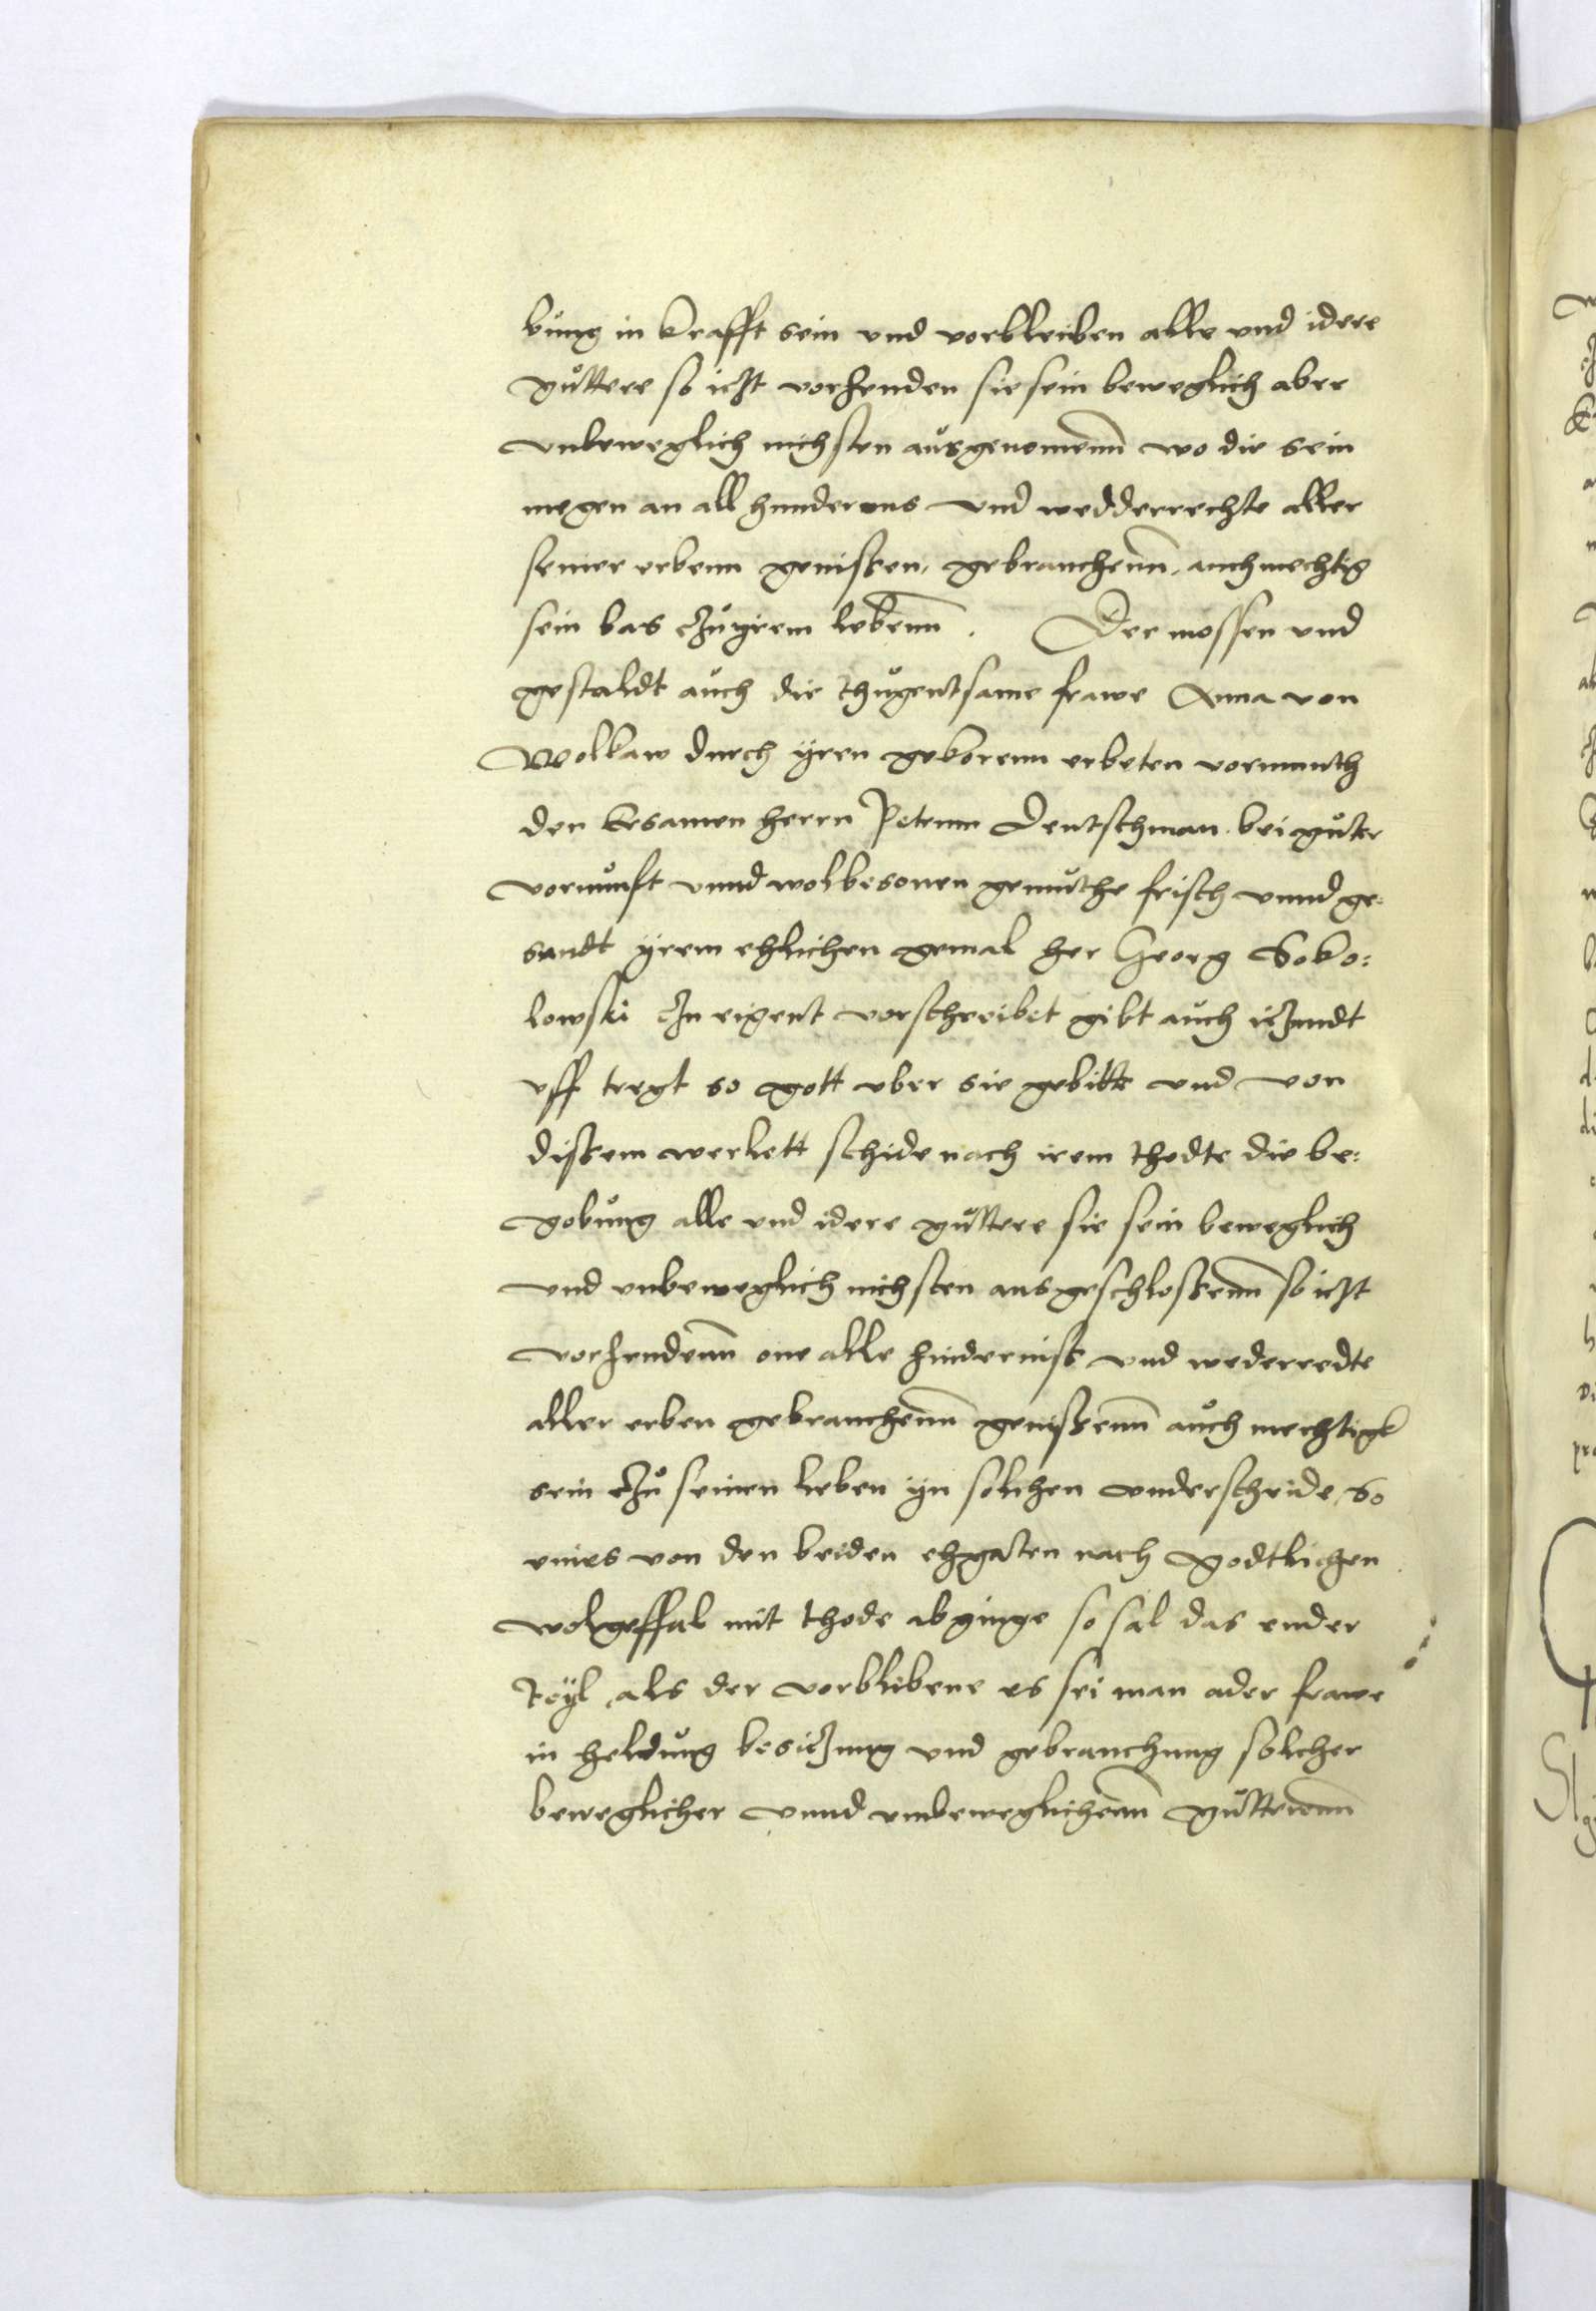 bung in krafft sein und vorbleiben alle und idere
guttere so iczt vorhenden sie sein beweglich aber
unbeweglich nichsten ausgenomenn wo die sein
megen an all hinderens und wedderrechte aller
seiner erbenn genissen, gebrauchenn, auch mechtig
sein bas czu yrem lebenn. Der mossen und
gestaldt auch die thugentsame frawe Anna von
Molkaw durch yren gekorenn erbeten vormunth
den Ersamen herrn Petrum Deutschman bei guter
vornunfft unnd wolbesonen gemuthe frisch unnd ge:
sundt yrem ehlichen gemal her Georg Soko:
lowski czu eigent vorschreibet gibt auch iczundt
uff tregt so gott uber sie gebitt und von
dissem werlett schide nach irem thodte die be:
gobung alle und idere guttere sie sein beweglich
und unbeweglich nichsten ausgeschlossenn so iczt
vorhendenn one alle hinderniss und wederredte
aller erben gebrauchenn genissenn auch mechtigk
sein czu seinen leben yn solchen underscheide so
eines von den beiden ehgaten nach godtlichen
wolgeffal mit thode abginge so sal das ender
teyl als der vorblibene es sei man ader frawe
in heldung besiczung und gebrauchung solcher
beweglicher unnd unbeweglichenn gutterenn